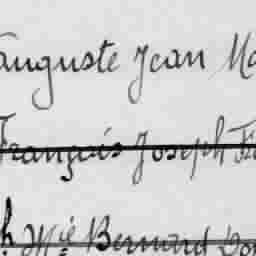 Auguste Jean Ma
François Joseph Fr
h Mie Bernard Don